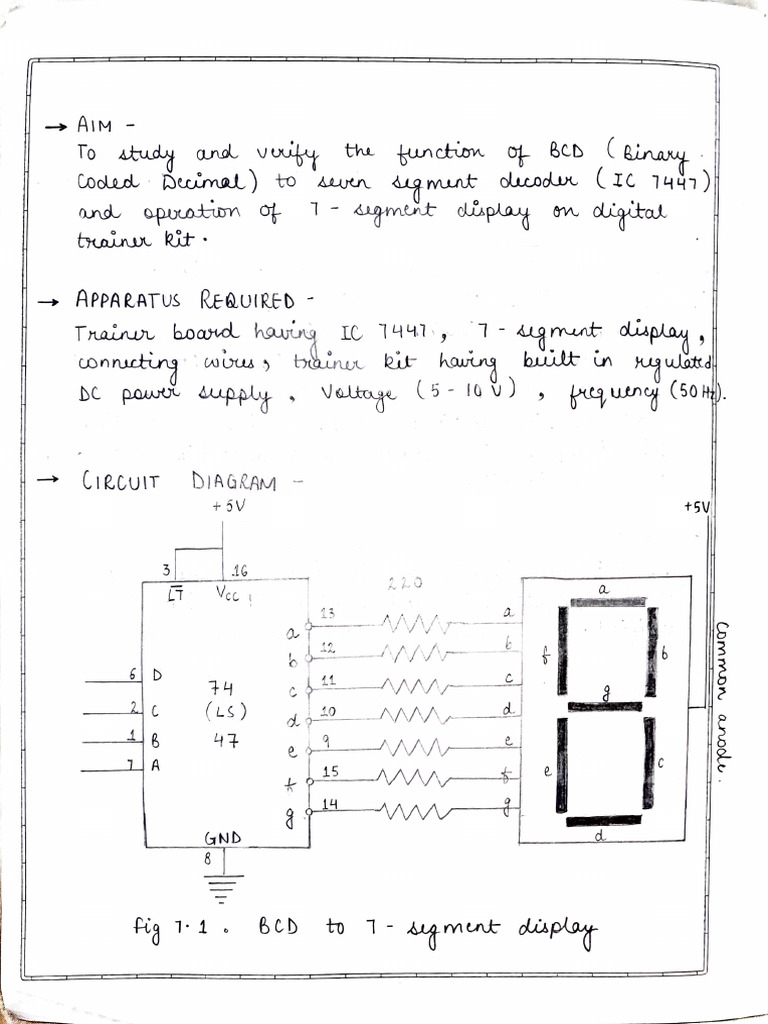 → AIM -
To study and verify the function of BCD (Binary
Coded Decimal) to seven segment decoder (IC 7447)
and operation of 7 - segment display on digital
trainer kit.
→ APPARATUS REQUIRED -
Trainer board having IC 7447, 7 - segment display,
connecting wires, trainer kit having built in regulated
DC power supply, Voltage (5 - 10 V), frequency (50 Hz).
→ CIRCUIT DIAGRAM -
+5V
+5V
3 16
LT Vcc
220
a 13 a
b 12 b
c 11 c
d 10 d
e 9 e
f 15 f
g 14 g
6 D
2 C
1 B
7 A
74
(LS)
47
GND
8
a
f b
g
e c
d
Common anode.
fig 7.1. BCD to 7 - segment display